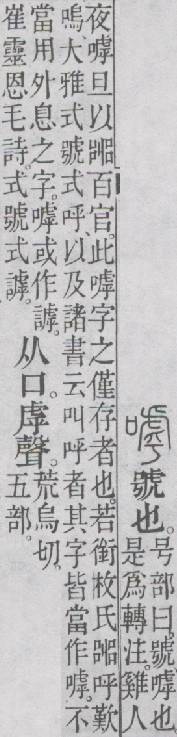 嘑號也。号部曰。號嘑也
是爲轉注。雞人
夜嘑旦以嘂百官。此嘑字之僅存者也。若銜枚氏嘂呼歎
鳴大雅式號式呼、以及諸書云叫呼者其字皆當作嘑。不
當用外息之字。嘑或作謼。
崔靈恩毛詩。式號式謼。
从口。虖聲。荒烏切。
五部。